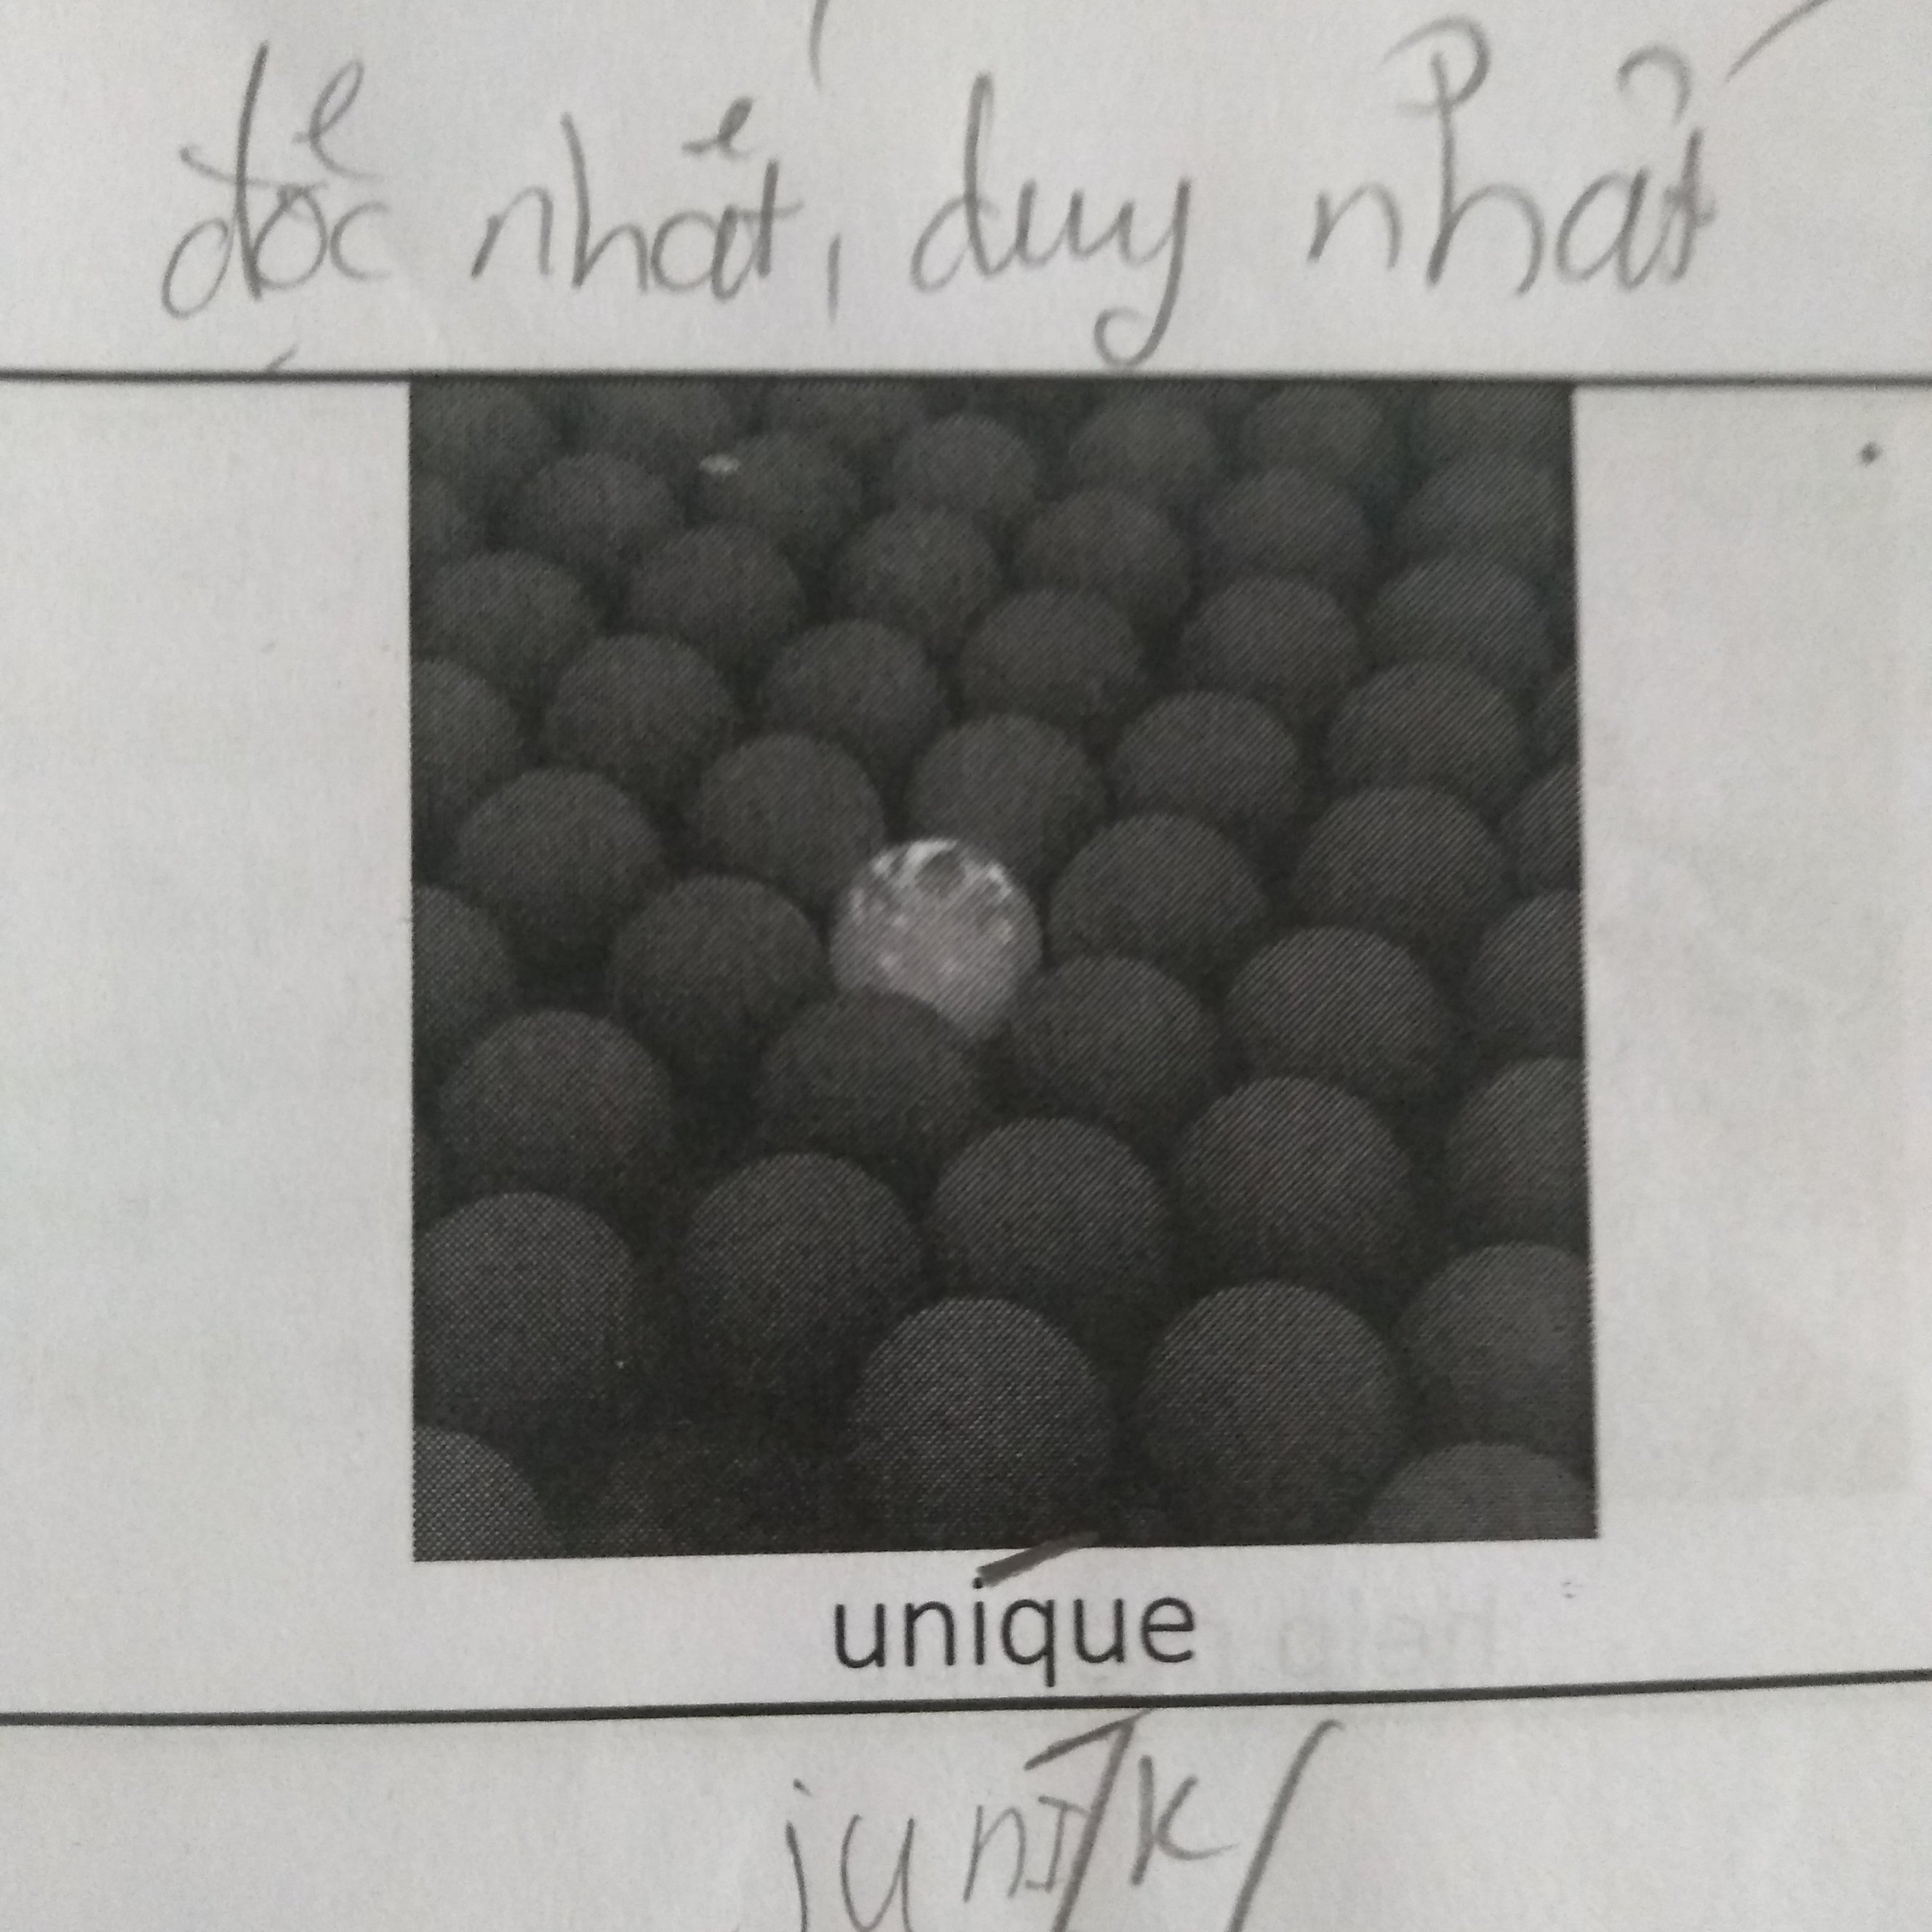 độc nhất, duy nhất
unique
junIk/